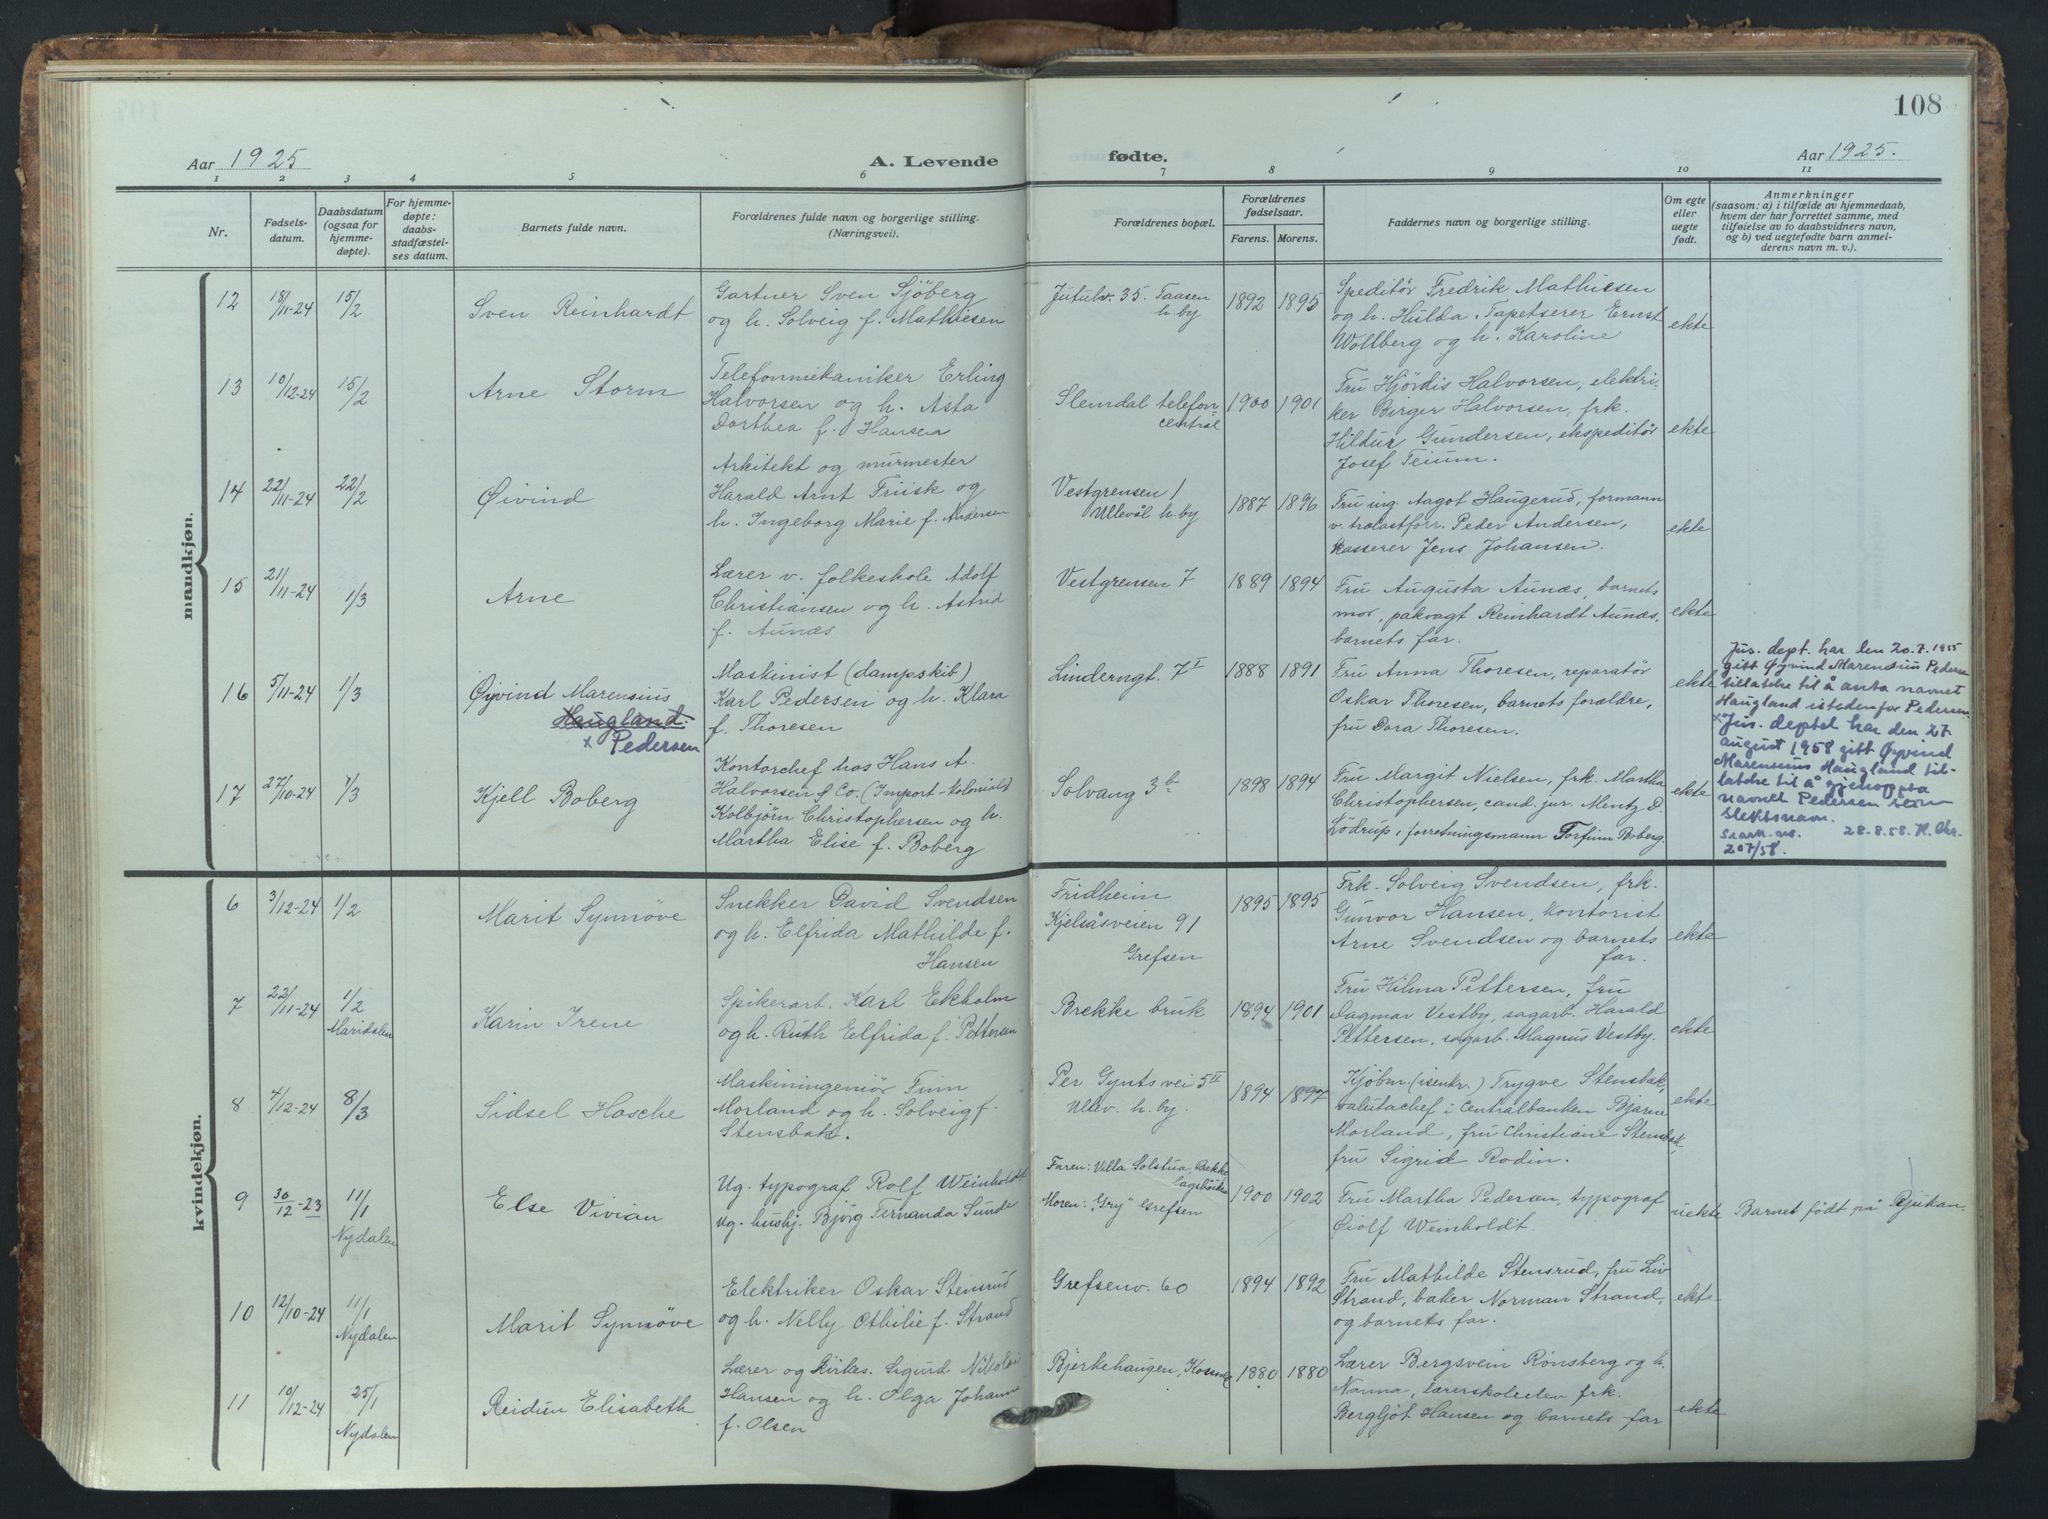 108
Aar 1925
A. Levende
fødte.
Aar 1925.
1 2 3 4 5 6 7 8 9 10 11
Nr.
Fødsels-
datum.
Daabsdatum
(ogsaa for
hjemme-
døpte).
For hjemme-
døpte:
daabs-
stadfæstel-
ses datum.
Barnets fulde navn.
Forældrenes fulde navn og borgerlige stilling.
(Næringsvei).
Forældrenes bopæl.
Forældrenes
fødselsaar.
Farens. Morens.
Faddernes navn og borgerlige stilling.
Om egte
eller
uegte
født.
Anmerkninger
(saasom: a) i tilfælde av hjemmedaab,
hvem der har forrettet samme, med
tilføielse av to daabsvidners navn,
og b) ved uegtefødte barn anmel-
derens navn m. v.).
mandkjøn.
12
18/11-24
15/2
Sven Reinhardt
Gartner Sven Sjöberg
og h. Solveig f. Mathiesen
Jutulv. 35. Taasen
h. by
1892 1895
Speditör Fredrik Mathiesen
og h. Hulda. Tapetserer Ernst
Wollberg og h. Karoline
ekte
13
10/12-24
15/2
Arne Storm
Telefonmekaniker Erling
Halvorsen og h. Asta
Dorthea f. Hansen
Slemdal telefon-
central
1900 1901
Fru Hjördis Halvorsen, elektri-
ker Birger Halvorsen, frk.
Hildur Gundersen, ekspeditör
Josef Teium.
ekte
14
22/11-24
22/2
Øivind
Arkitekt og murmester
Harald Arnt Friisk og
h. Ingeborg Marie f. Andersen
Vestgrensen 1
Ullevål h. by
1887 1896
Fru ing. Aagot Haugerud, formann
v. trælastforr. Peder Andersen,
kasserer Jens Johansen.
ekte
15
21/11-24
1/3
Arne
Lærer v. folkeskole Adolf
Christiansen og h. Astrid
f. Aunæs
Vestgrensen 7
1889 1894
Fru Augusta Aunæs, barnets
mor, pakvagt Reinhardt Aunæs,
barnets far.
ekte
16
5/11-24
1/3
Øyvind Marensius
Haugland
x Pedersen
Maskinist (dampskib)
Karl Pedersen og h. Klara
f. Thoresen
Linderngt. 7 I
1888 1891
Fru Anna Thoresen, reparatør
Oskar Thoresen, barnets forældre,
fru Dora Thoresen.
ekte
Jus. dept. har den 20.7.1955
gitt Øyvind Marensius Pedersen
tillatelse til å anta navnet
Haugland istedenfor Pedersen.
x Jus. deptet har den 27.
august 1958 gitt Øyvind
Marensius Haugland til-
latelse til å gjenoppta
navnet Pedersen som
slektsnavn.
28-8.58. H. Chr.
207/58.
17
27/10-24
1/3
Kjell Boberg
Kontorchef hos Hans A.
Halvorsen & Co. (Import-Kolonial)
Kolbjörn Christophersen og h.
Martha Elise f. Boberg
Solvang 3 b
1898 1894
Fru Margit Nielsen, frk. Martha
Christophersen, cand. jur. Mentz D.
Lödrup, forretningsmann Torfinn Boberg.
ekte
kvindekjøn.
6
3/12-24
1/2
Marit Synnöve
Snekker David Svendsen
og h. Elfrida Mathilde f.
Hansen
Fridheim
Kjelsåsveien 91
Grefsen
1895 1895
Frk. Solveig Svendsen, frk.
Gunvor Hansen, kontorist
Arne Svendsen og barnets
far.
ekte
7
22/11-24
1/2
Maridalen
Karin Irene
Spikerarb. Karl Ekholm
og h. Ruth Elfrida f. Pettersen
Brekke bruk
1894 1901
Fru Hilma Pettersen, fru
Dagmar Vestby, sagarb. Harald
Pettersen, sagarb. Magnus Vestby.
ekte
8
4/12-24
8/3
Sidsel Hasche
Maskiningeniör Finn
Morland og h. Solveig f.
Stensbak.
Per Gynts vei 5 II
Ullev. h. by.
1894 1897
Kjöbm. (isenkr.) Trygve Stensbak,
valutachef i Centralbanken Bjarne
Morland, fru Christiane Stensbak,
fru Sigrid Rodin.
ekte
9
30/12-23
11/1
Nydalen
Else Vivian
Ug. typograf Rolf Weinholdt
Ug. hushj. Bjørg Fernanda Sunde
Faren: Villa Solstua, Bakke
Moren: "Gry" Grefsen
1900 1902
Fru Martha Pedersen, typograf
Øiolf Weinholdt.
uekte
Barnet født på Rjukan.
10
12/10-24
11/1
Nydalen
Marit Synnöve
Elektriker Oskar Stensrud
og h. Nelly Othilie f. Strand
Grefsenv. 60
1894 1892
Fru Mathilde Stensrud, fru Liv
Strand, baker Norman Strand,
og barnets far.
ekte
11
10/12-24
25/1
Nydalen
Reidun Elisabeth
Lærer og kirkes. Sigurd Nikolai
Hansen og h. Olga Johanne
f. Olsen
Bjerkehaugen,
1880 1880
Lærer Bergsvein Rønsberg og h.
Nanna, lærerskoleelev frk.
Bergljót Hansen og barnets far
ekte